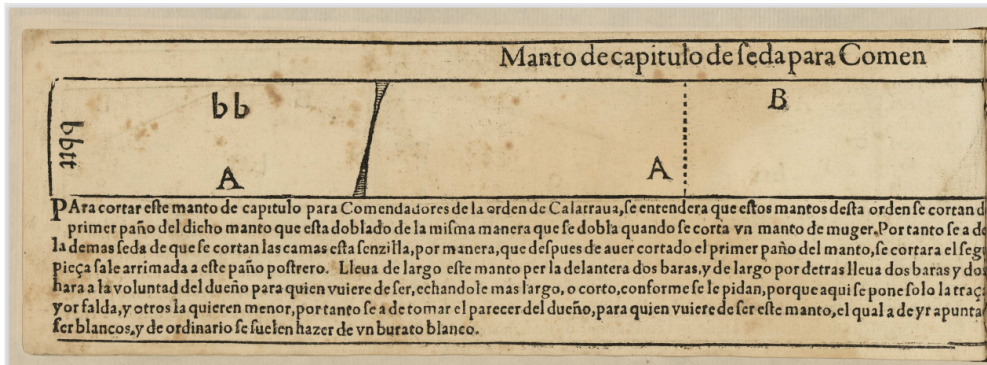 Manto de capitulo de ſeda para Comen
bb
B
bbtt
A
A
PAra cortar eſte manto de capitulo para Comendadores de la orden de Calatraua, ſe entendera que eſtos mantos deſta orden ſe cortan d
primer paño del dicho manto que eſta doblado de la miſma manera que ſe dobla quando ſe corta vn manto de muger. Por tanto ſe a de
la demas ſeda de que ſe cortan las camas eſta ſenzilla, por manera, que deſpues de auer cortado el primer paño del manto, ſe cortara el ſegu
pieça ſale arrimada a eſte paño poſtrero. Lleua de largo eſte manto per la delantera dos baras, y de largo por detras lleua dos baras y dos
hara a la voluntad del dueño para quien vuiere de ſer, echandole mas largo, o corto, conforme ſe le pidan, porque aqui ſe pone ſolo la traça
yor falda, y otros la quieren menor, por tanto ſe a de tomar el parecer del dueño, para quien vuiere de ſer eſte manto, el qual a de yr apunta
ſer blancos, y de ordinario ſe ſuelen hazer de vn burato blanco.